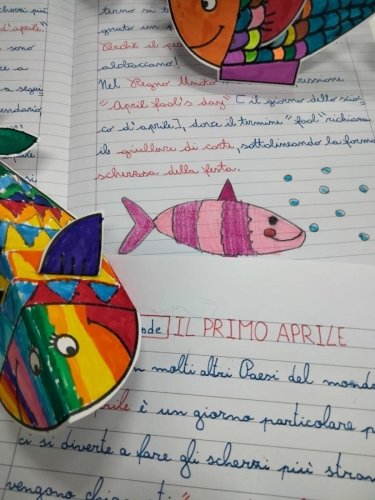 scherzi più
d'aprile"
sono
re a
a segui
endario
termo si t
grato un
Perché il pe
abboccano!
Nel Regno Unito ressione
"April fool's day" [il giorno dello scioc
co d'aprile], dove il termine "fool" richiama
il giullare di corte, sottolineando la forma
scherzosa della festa.
ode IL PRIMO APRILE
n molti altri Paesi del mondo
rile è un giorno particolare p
ci si diverte a fare gli scherzi più stran
vengono chiamati "